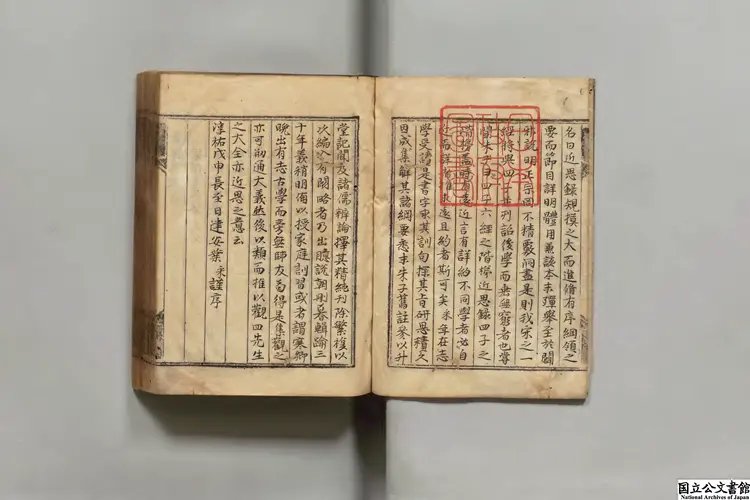 名曰近思錄規模之大而進脩有序綱領之
要而節目詳明體用兼該本末殫舉至於闢
邪說明正宗罔不精覈洞盡是則我宋之一
經將與四子並列詔後學而垂無窮者也嘗
聞朱子曰四子六經之階梯近思錄四子之
階梯盖時有遠近言有詳約不同學者必自
近而詳者推求遠且約者斯可矣采年在志
學受讀是書字求其訓句探其旨研思積久
因成集解其諸綱要悉本朱子舊註參以升
堂記聞及諸儒辯論擇其精純刊除繁複以
次編入有闕略者乃出臆說朝刪暮輯踰三
十年義稍明備以授家庭訓習或者謂寒鄉
晚出有志古學而旁無師友苟得是集觀之
亦可刱通大義然後以類而推以觀四先生
之大全亦近思之意云
淳祐戊申長至日建安葉采謹序
国立公文書館
National Archives of Japan